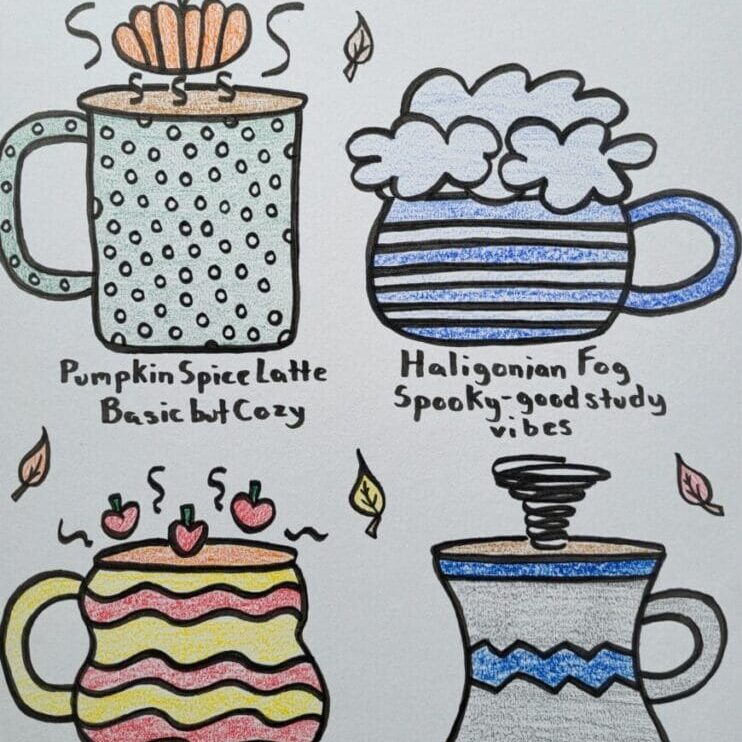 Pumpkin Spice Latte
Basic but Cozy
Haligonian Fog
Spooky-good study
vibes